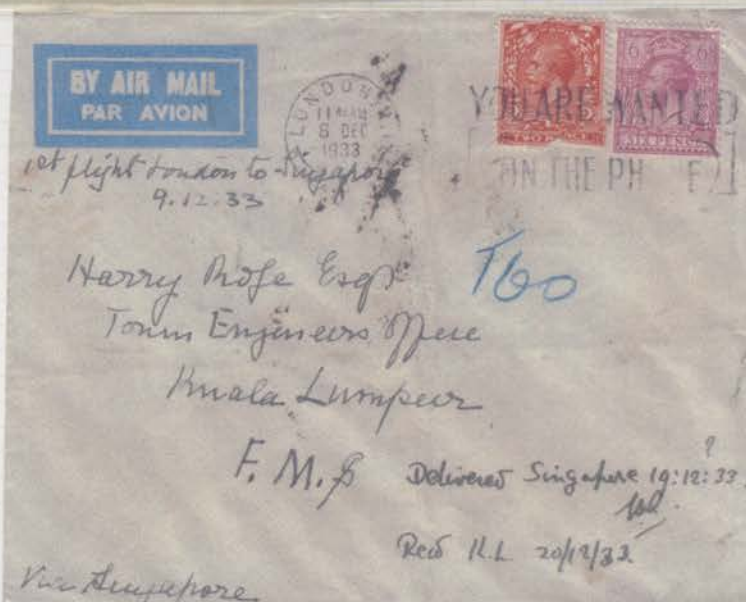 BY AIR MAIL
PAR AVION
LONDON
11 AM
6 DEC
1933
6 6
SIX PENCE
YOU ARE WANTED
ON THE PH E
1st flight London to Singapore
9.12.33
T60
Harry Esqr
Town Engineers Office
Kuala Lumpur
F.M.S
?
Delivered Singapore 19:12:33
Recd K.L 20/12/33.
Via Singapore